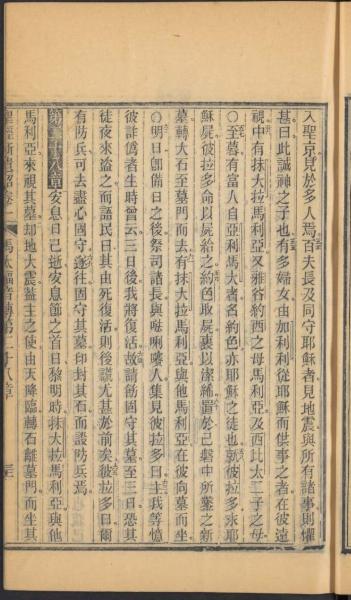 入聖京見於多人焉百夫長及同守耶穌者見地震與所有諸事則懼
甚曰此誠神之子也有多婦女由加利利從耶穌而供事之者在彼遠
視中有抹大拉馬利亞又雅谷約西之母馬利亞及西比太二子之母
○至暮有富人自亞利馬大者名約色亦耶穌之徒也就彼拉多求耶
穌屍彼拉多命以屍給之約色取屍裹以潔䋈置於己磐中所鑿之新
墓轉大石至墓門而去有抹大拉馬利亞與他馬利亞在彼向墓而坐
○明日卽備日之後祭司諸長與𠵽唎㘔人集見彼拉多曰主我等憶
彼詐偽者生時曾云三日後我將復活故請飭固守其墓至三日恐其
徒夜來盜之而語民曰其由死復活則後謊尤甚於前矣彼拉多曰爾
有防兵可去盡心固守遂往固守其墓印封其石而設防兵焉
第二十八章 安息日已逝安息節之首日黎明時抹大拉馬利亞與他
馬利亞來視其墓却地大震蓋主之使由天降臨轉石離墓門而坐其
聖經新遺詔卷一 馬太福音傳第二十八章 三